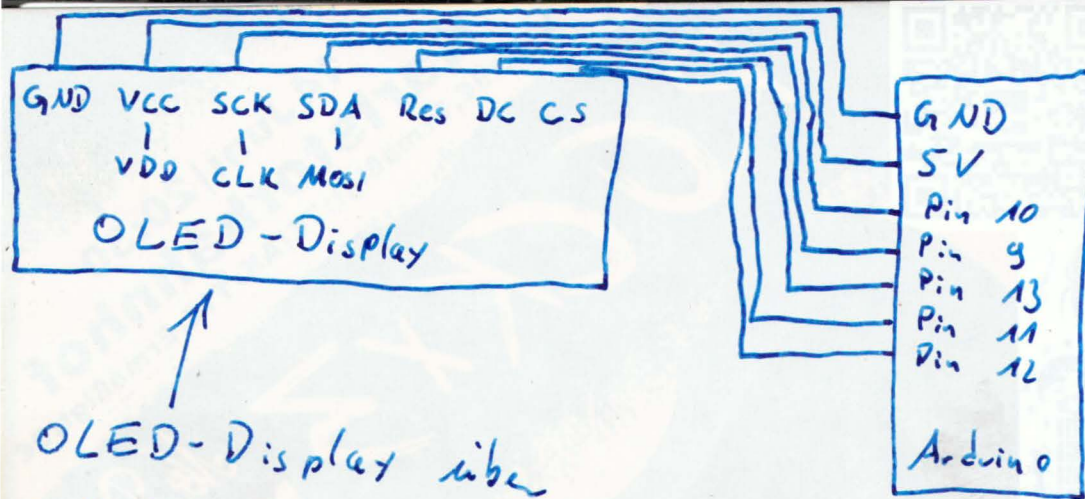 GND VCC SCK SDA Res DC CS
VDD CLK MOSI
OLED-Display
OLED-Display über
GND
5V
Pin 10
Pin 9
Pin 13
Pin 11
Pin 12
Arduino